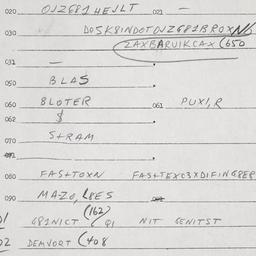 020 OJZ681HEJLT 021 —
030 DOSK8INDOTOJZ681BROXN
ZAXBARUIKCAX (650
031 —
050 BLAS
060 BLOTER 061 PUXI,R
062 $
070 STRAM
071
080 FASTTOXN FASTTEXC3XDIFING8ER
090 MAZO, L8ES
(162)
01 G81NICT / Q1 NIT GENITST
02 DEMVORT (408